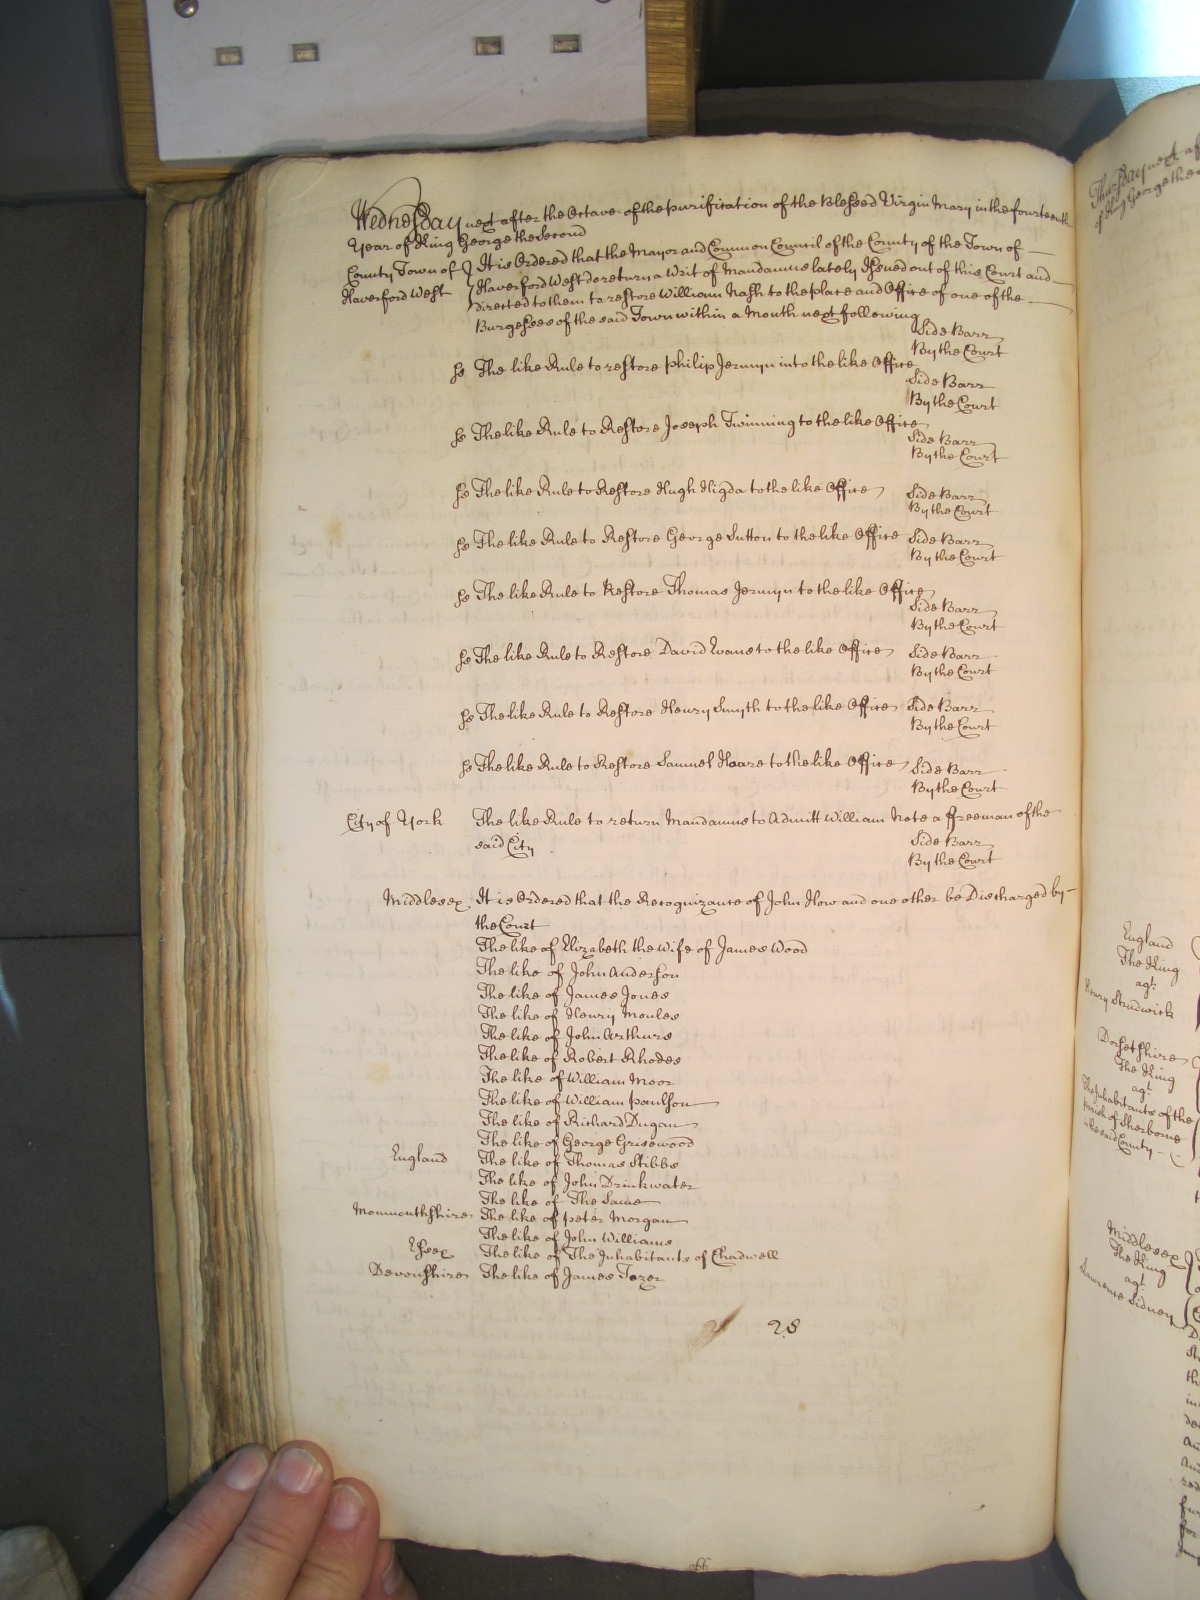 Wednesday next after the Octave of the purification of the Blessed Virgin Mary in the fourteenth
Year of King George the Second
County Town of
Haverford West
It is Ordered that the Mayor and Common Council of the County of the Town of
Haverford West do return a Writ of Mandamus lately Issued out of this Court and
directed to them to restore William Nash to the place and Office of one of the
Burgesses of the said Town within a Month next following
Side Barr
By the Court
ss The like Rule to restore Philip Jermyn into the like Office
Side Barr
By the Court
ss The like Rule to Restore Joseph Twinning to the like Office
Side Barr
By the Court
ss The like Rule to Restore Hugh Higda to the like Office Side Barr
By the Court
ss The like Rule to Restore George Sutton to the like Office Side Barr
By the Court
ss The like Rule to Restore Thomas Jermyn to the like Office
Side Barr
By the Court
ss The like Rule to Restore David Evans to the like Office Side Barr
By the Court
ss The like Rule to Restore Henry Smyth to the like Office Side Barr
By the Court
ss The like Rule to Restore Samuel Hoare to the like Office Side Barr
By the Court
City of York The like Rule to return Mandamus to Admitt William Note a freeman of the
said City
Side Barr
By the Court
Middlesex It is Ordered that the Recognizance of John How and one other be Discharged by
the Court
The like of Elizabeth the Wife of James Wood
The like of John Anderson
The like of James Jones
The like of Henry Moules
The like of John Arthurs
The like of Robert Rhodes
The like of William Moor
The like of William Paulson
The like of Richard Dugan
The like of George Grisewood
England The like of Thomas Stibbs
The like of John Drinkwater
The like of The Same
Monmouthshire The like of Peter Morgan
The like of John Williams
Essex The like of The Inhabitants of Chadwell
Devonshire The like of James Tozer
28
Thursday next
of King George the
England
The King
agt
Henry Strudwick
Dorsetshire
The King
agt
The Inhabitants of the
parish of Sherborne
in the said County
Middlesex
The King
agt
Lawrence Sidney